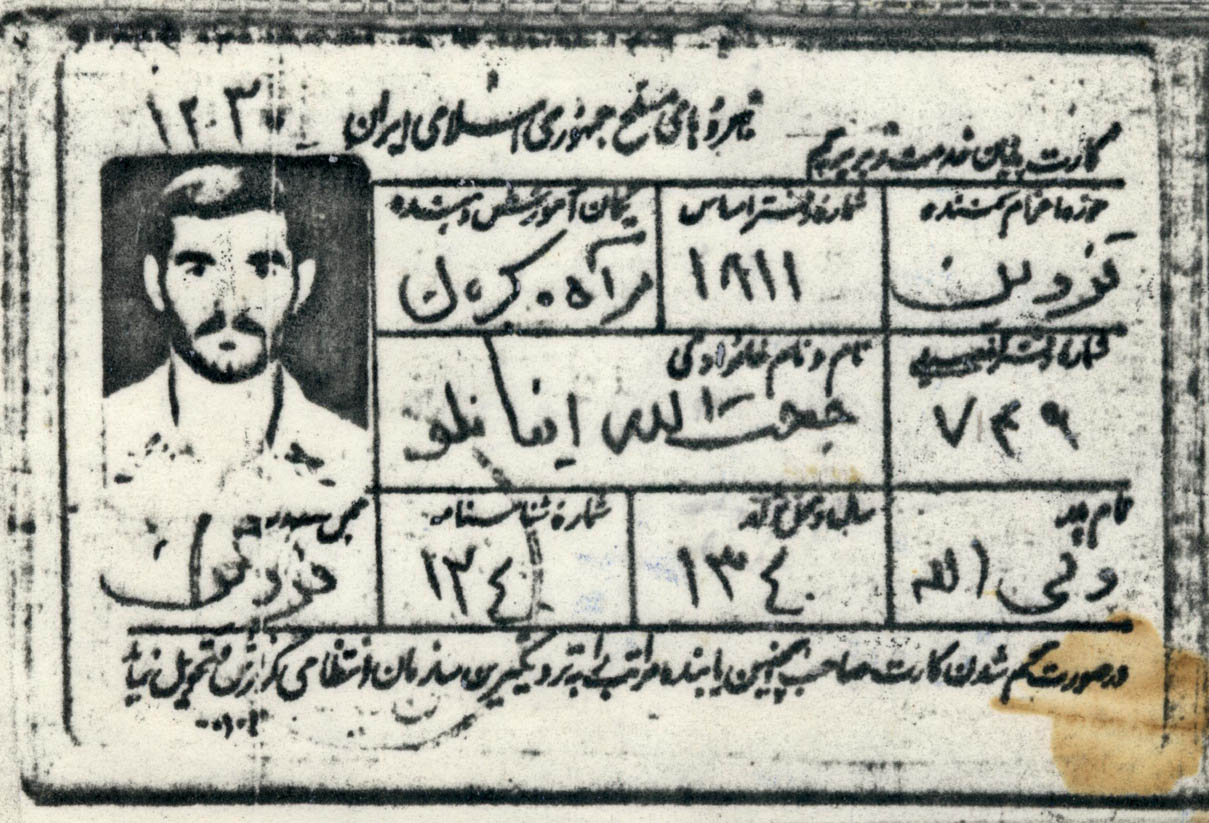 ۱۲۰۳
نیروهای مسلح جمهوری اسلامی ایران
کارت پایان خدمت زیر پرچم
حوزه اعزام کننده
شماره دفتر اساس
یکان آموزشی دهنده
قزوین
۱۸۱۱
مرآه کرمان
نام و نام خانوادگی
۷۴۹
حجت الله اینانلو
نام پدر
شماره شناسنامه
ولی الله
۱۳۴۰
۱۲۴
قزوین
در صورت گم شدن کارت صاحب یا یابنده مراتب را به نزدیکترین سازمان انتظامی گزارش و تحویل نماید